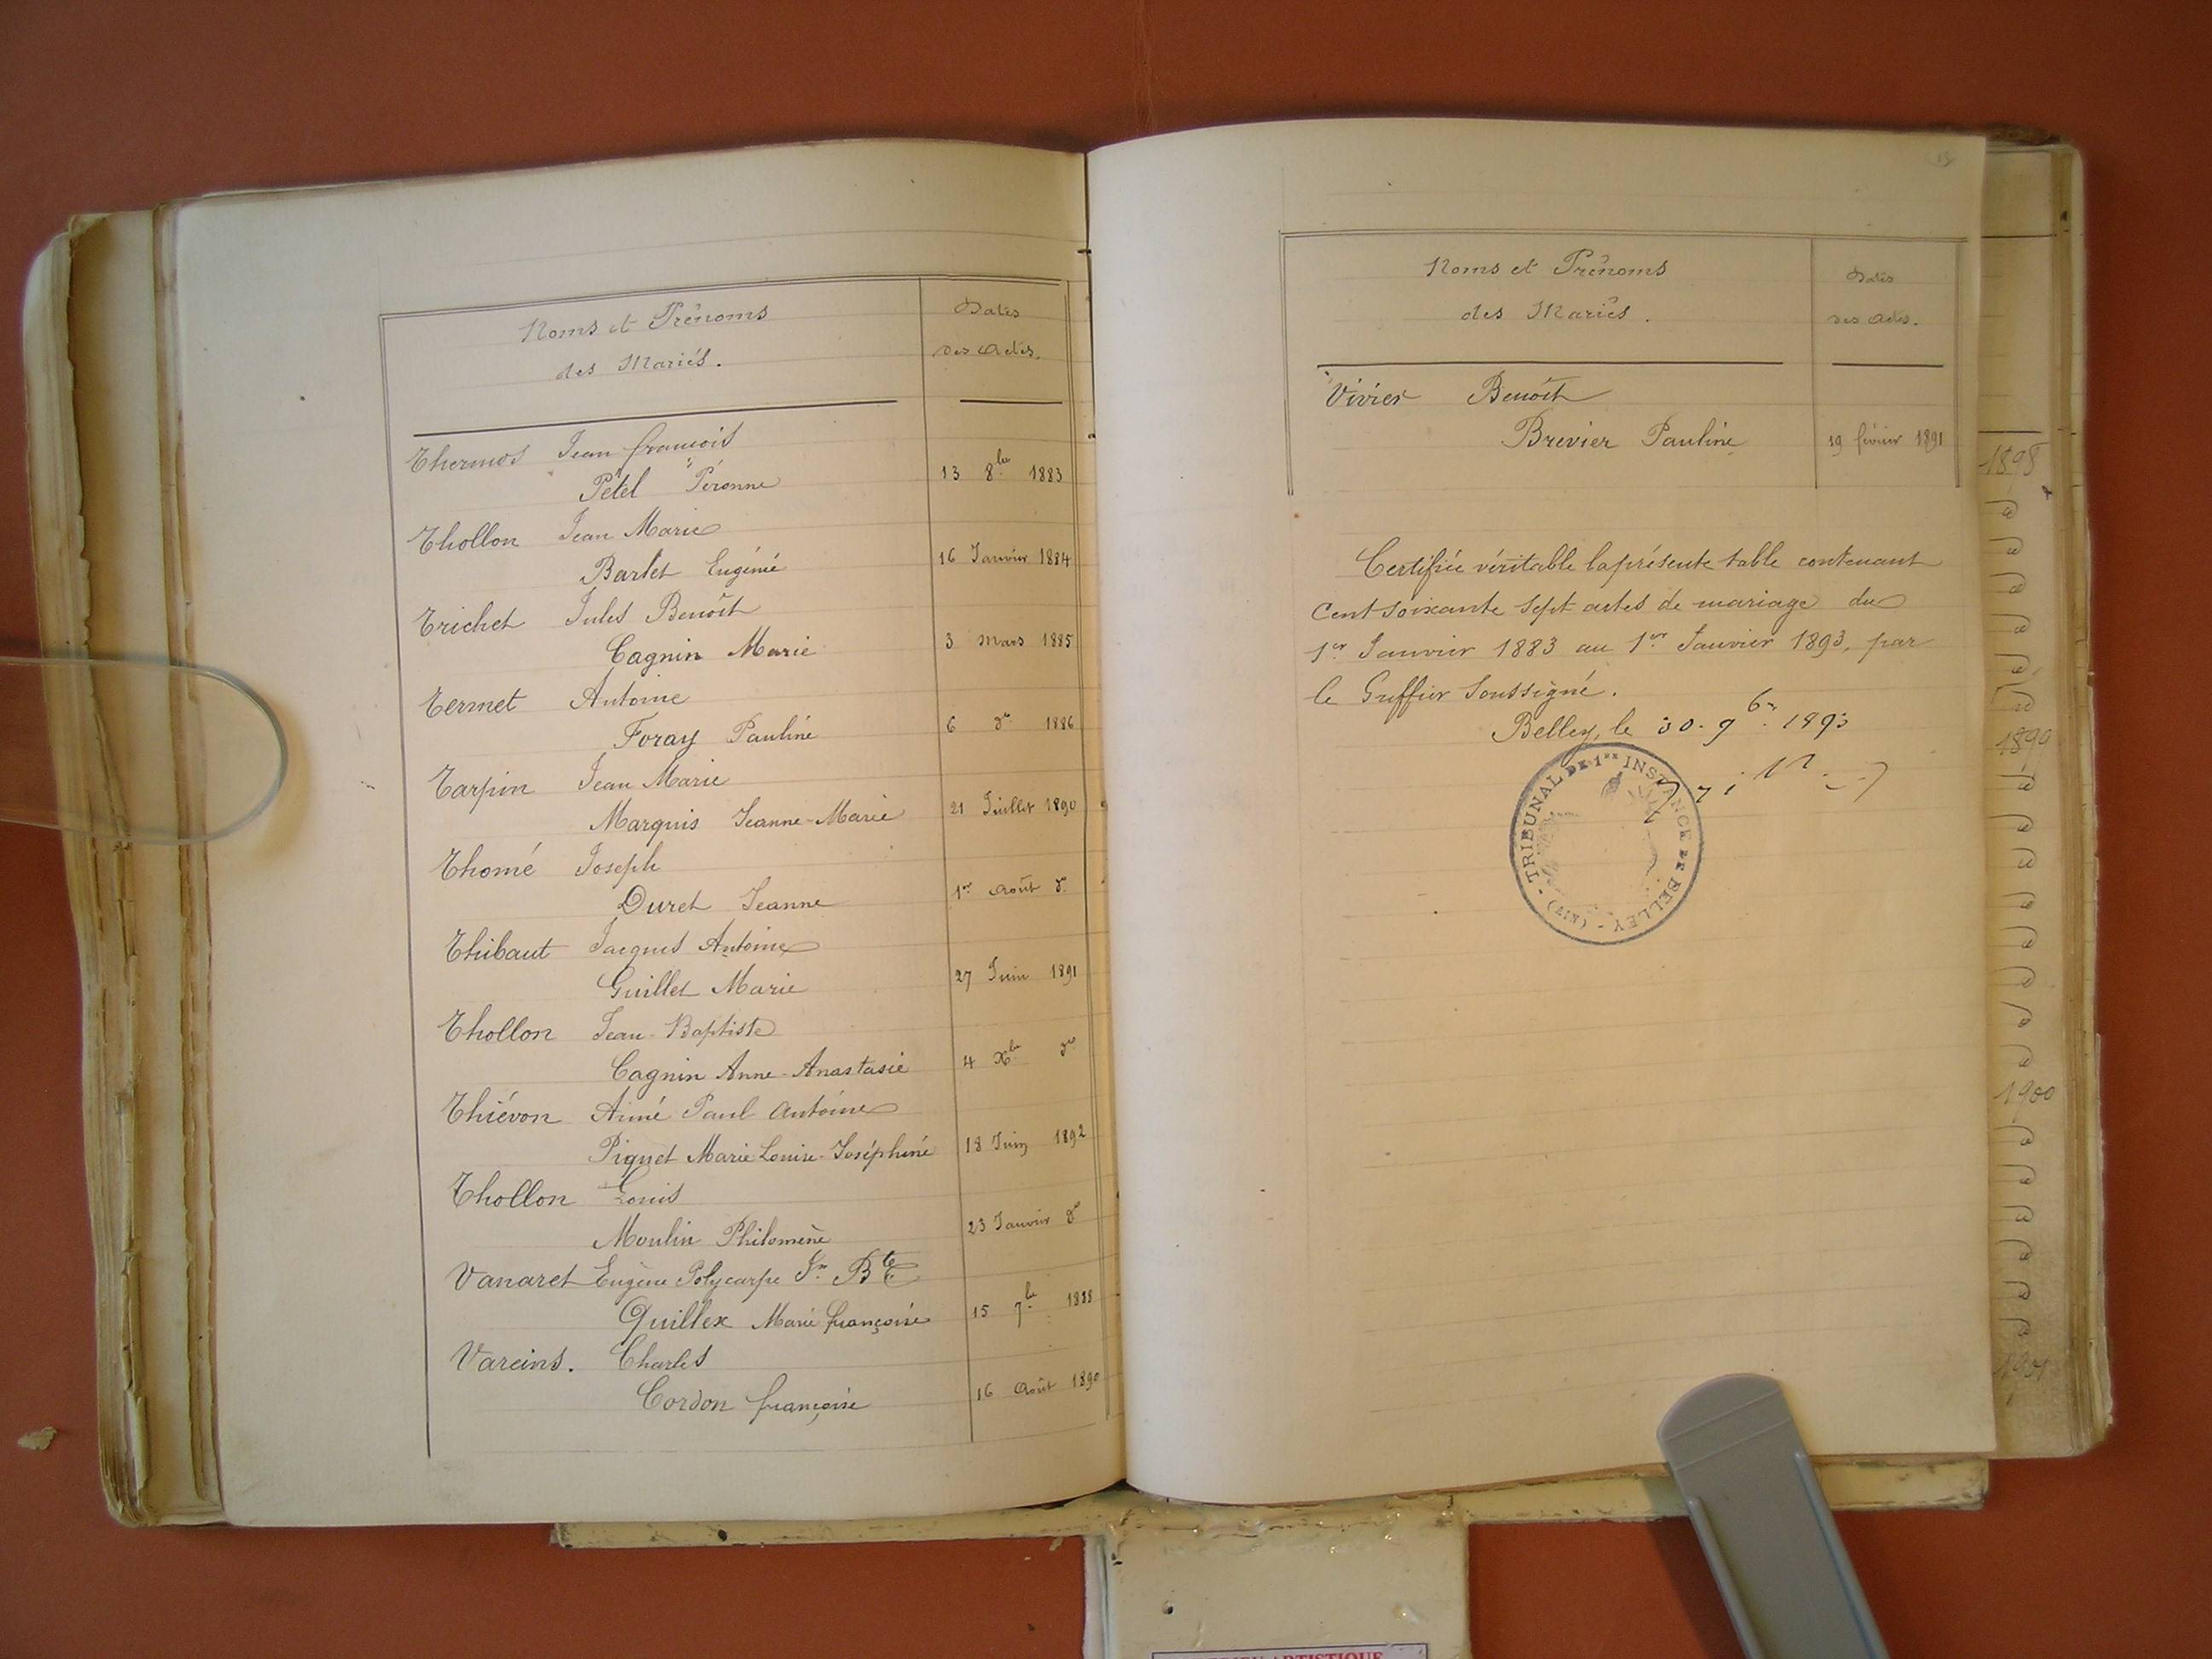 Noms et Prénoms
des Mariés.
Dates
des Actes.
Thermos Jean françois
Pétel Péronne
13 8bre 1883
Thollon Jean Marie
Barlet Eugénie
16 Janvier 1884
Trichet Jules Benoît
Cagnin Marie
3 Mars 1885
Termet Antoine
Foray Pauline
6 do 1886
Tarpin Jean Marie
Marquis Jeanne-Marie
21 Juillet 1890
Thomé Joseph
Duret Jeanne
1er Août do
Thibaut Jacques Antoine
Guillet Marie
27 Juin 1891
Thollon Jean-Baptiste
Cagnin Anne-Anastasie
4 Xbre do
Thiévon Aimé Paul Antoine
Piquet Marie Louise-Joséphine
18 Juin 1892
Thollon Louis
Moulin Philomène
23 Janvier do
Vanaret Eugène Polycarpe Jn Bte
Quillex Marie françoise
15 7bre 1888
Vareins. Charles
Cordon françoise
16 Août 1890
Noms et Prénoms
des Mariés.
Dates
des Actes.
Vivier Benoît
Brevier Pauline
19 février 1891
Certifiée véritable la présente table contenant
Cent soixante sept actes de mariage du
1er Janvier 1883 au 1er Janvier 1893, par
le Greffier Soussigné.
Belley, le 30. 9bre 1893
TRIBUNAL DE 1RE INSTANCE DE BELLEY - (AIN) -
1898
1899
1900
1901
ARTISTIQUE